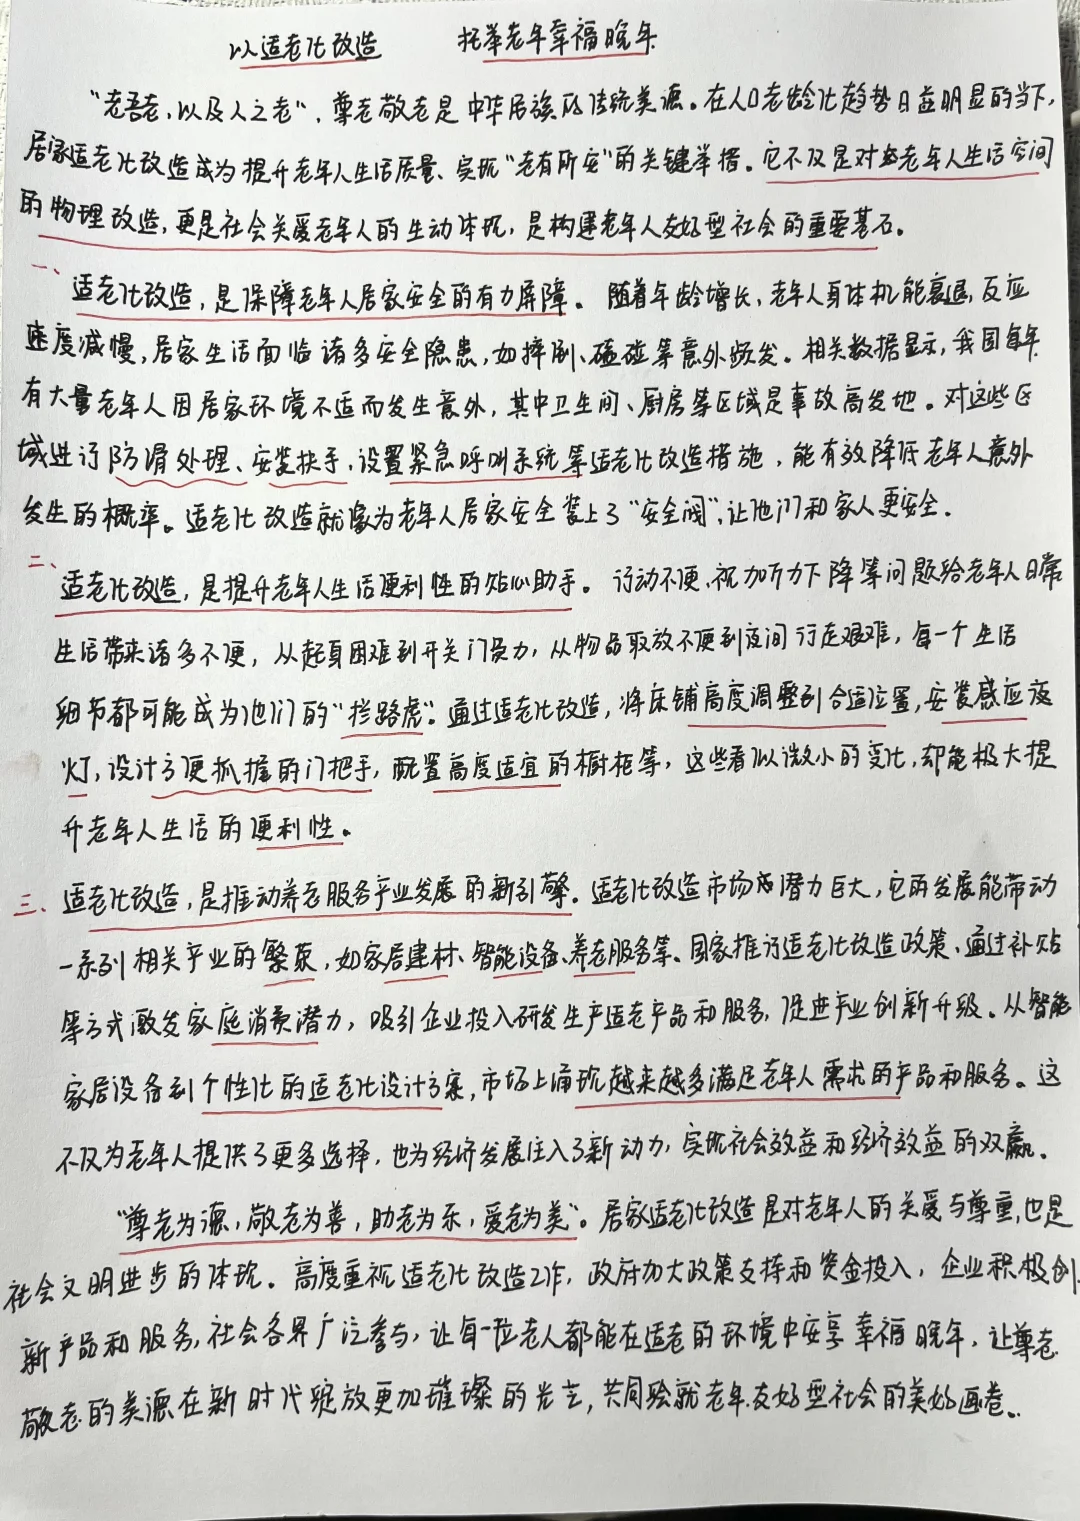 以适老化改造 托举老年幸福晚年
“老吾老,以及人之老”,尊老敬老是中华民族的传统美德。在人口老龄化趋势日益明显的当下,
居家适老化改造成为提升老年人生活质量、实现“老有所安”的关键举措。它不仅是对老年人生活空间
的物理改造,更是社会关爱老年人的生动体现,是构建老年人友好型社会的重要基石。
一、适老化改造,是保障老年人居家安全的有力屏障。随着年龄增长,老年人身体机能衰退,反应
速度减慢,居家生活面临诸多安全隐患,如摔倒、磕碰等意外频发。相关数据显示,我国每年
有大量老年人因居家环境不适而发生意外,其中卫生间、厨房等区域是事故高发地。对这些区
域进行防滑处理、安装扶手,设置紧急呼叫系统等适老化改造措施,能有效降低老年人意外
发生的概率。适老化改造就像为老年人居家安全装上了“安全阀”,让他们和家人更安全.
二、适老化改造,是提升老年人生活便利性的贴心助手。行动不便、视力听力下降等问题给老年人日常
生活带来诸多不便,从起身困难到开关门费力,从物品取放不便到夜间行走艰难,每一个生活
细节都可能成为他们的“拦路虎”.通过适老化改造,将床铺高度调整到合适位置,安装感应夜
灯,设计方便抓握的门把手,配置高度适宜的橱柜等,这些看似微小的变化,却能极大提
升老年人生活的便利性。
三、适老化改造,是推动养老服务产业发展的新引擎.适老化改造市场潜力巨大,它的发展能带动
一系列相关产业的繁荣,如家居建材、智能设备、养老服务等。国家推行适老化改造政策、通过补贴
等方式激发家庭消费潜力,吸引企业投入研发生产适老产品和服务,促进产业创新升级。从智能
家居设备到个性化的适老化设计方案,市场上涌现越来越多满足老年人需求的产品和服务。这
不仅为老年人提供了更多选择,也为经济发展注入了新动力,实现社会效益和经济效益的双赢.
“尊老为德,敬老为善,助老为乐,爱老为美”。居家适老化改造是对老年人的关爱与尊重,也是
社会文明进步的体现。高度重视适老化改造工作,政府加大政策支持和资金投入,企业积极创
新产品和服务,社会各界广泛参与,让每一位老人都能在适老的环境中安享幸福晚年,让尊老
敬老的美德在新时代绽放更加璀璨的光芒,共同绘就老年友好型社会的美好画卷。